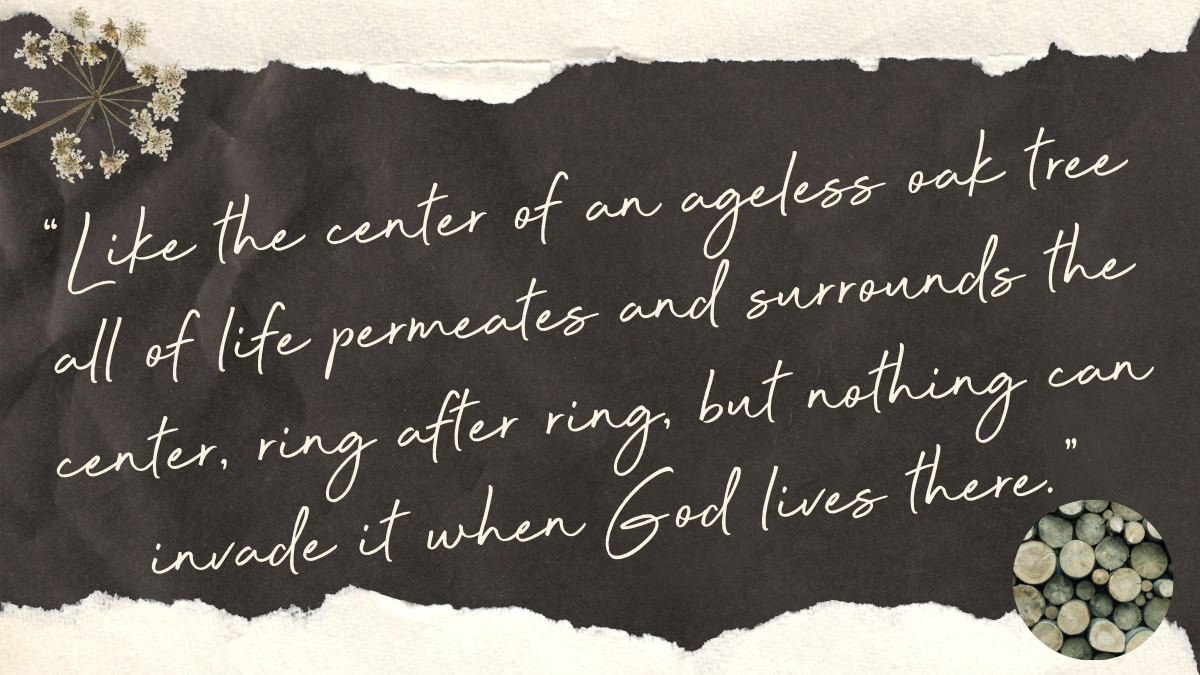 “Like the center of an ageless oak tree
all of life permeates and surrounds the
center, ring after ring, but nothing can
invade it when God lives there.”